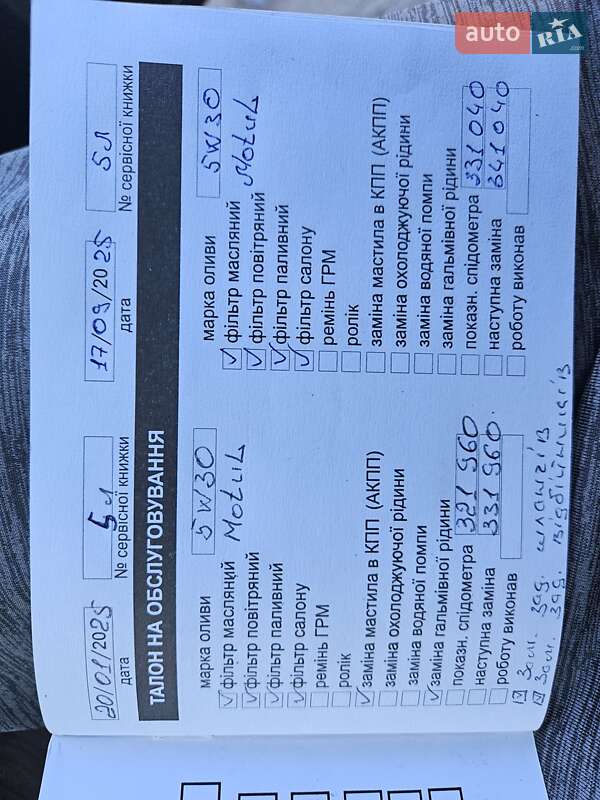 auto RIA .com
20/01/2025
дата
5л
№ сервісної книжки
17/09/2025
дата
5л
№ сервісної книжки
ТАЛОН НА ОБСЛУГОВУВАННЯ
марка оливи 5W30
фільтр масляний Motul
фільтр повітряний
фільтр паливний
фільтр салону
ремінь ГРМ
ролік
заміна мастила в КПП (АКПП)
заміна охолоджуючої рідини
заміна водяної помпи
заміна гальмівної рідини
показн. спідометра 321 960
наступна заміна 331 960
роботу виконав
Зам. зад. шлангів
Зам. зад. відбійників
марка оливи 5W30
фільтр масляний Motul
фільтр повітряний
фільтр паливний
фільтр салону
ремінь ГРМ
ролік
заміна мастила в КПП (АКПП)
заміна охолоджуючої рідини
заміна водяної помпи
заміна гальмівної рідини
показн. спідометра 331 040
наступна заміна 341 040
роботу виконав